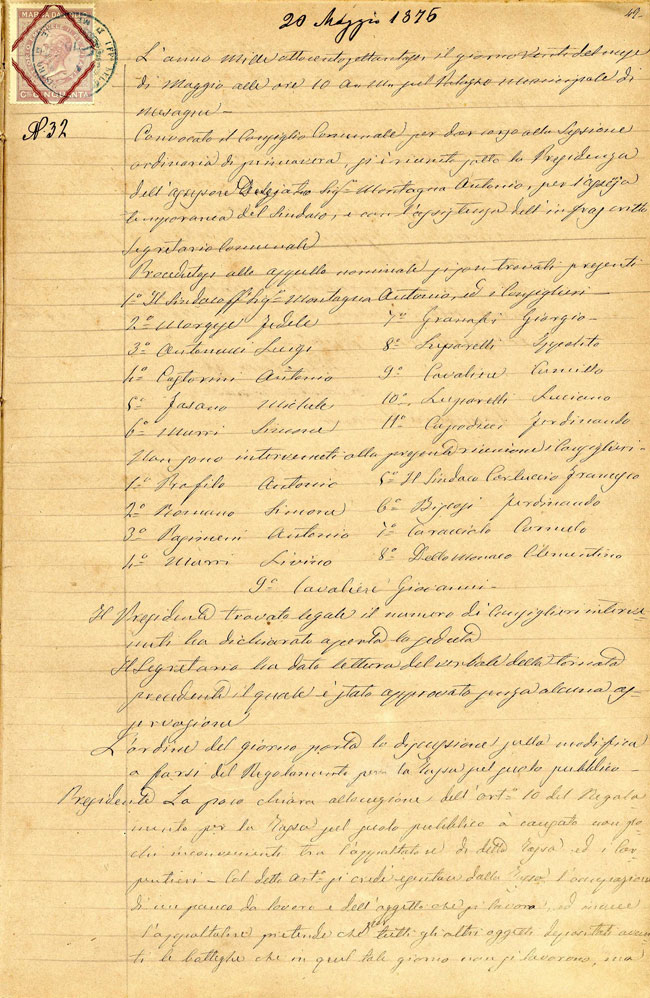 20 Maggio 1876
49
MARCA DA
C. CINQUANTA
N. 32
L'anno mille ottocentosettantasei il giorno venti del mese
di Maggio alle ore 10 Ant. nel Palazzo Municipale di
Mesagne—
Convocato il Consiglio Comunale per dar corso alla Sessione
ordinaria di primavera, si è riunito sotto la Presidenza
dell'assessore Delegato Sigr. Montagna Antonio, per l'assenza
temporanea del Sindaco, e con l'assistenza dell'infrascritto
Segretario Comunale
Procedutosi allo appello nominale si son trovati presenti
1º Il Sindaco ff. Sigr. Montagna Antonio, ed i Consiglieri—
2º Morgese Fedele 7º Granafei Giorgio—
3º Antonucci Luigi 8º Luparelli Ippolito
4º Castorini Antonio 9º Cavaliere Camillo
5º Fasano Michele 10º Luparelli Luciano
6º Murri Simone 11º Capodieci Ferdinando
Non sono intervenuti alla presente riunione i Consiglieri—
1º Profilo Antonio 5º Il Sindaco Carluccio Francesco
2º Romano Simone 6º Ferdinando
3º Antonio 7º Caracciolo Carmelo
4º Murri Livino 8º Dello Monaco Clementino
9º Cavaliere Giovanni—
Il Presidente trovato legale il numero di Consiglieri interve-
nuti ha dichiarato aperta la seduta
Il Segretario ha dato lettura del verbale della tornata
precedente il quale è stato approvato senza alcuna os-
servazione
L'ordine del giorno porta la discussione sulla modifica
a farsi del Regolamento per la Tassa sul suolo pubblico—
Presidente La poco chiara allocuzione dell'art.º 10 del Regola-
mento per la Tassa sul suolo pubblico à causato non po-
chi inconvenienti tra l'appaltatore di detta Tassa ed i Car-
pentieri— Col detto Art.º si crede esentare dalla Tassa l'occupazione
di un panco da lavoro e dell'oggetto che si lavora, ed invece
l'appaltatore pretende che tutti gli altri oggetti depositati avan-
ti le botteghe che in quel tale giorno non si lavorono, ma